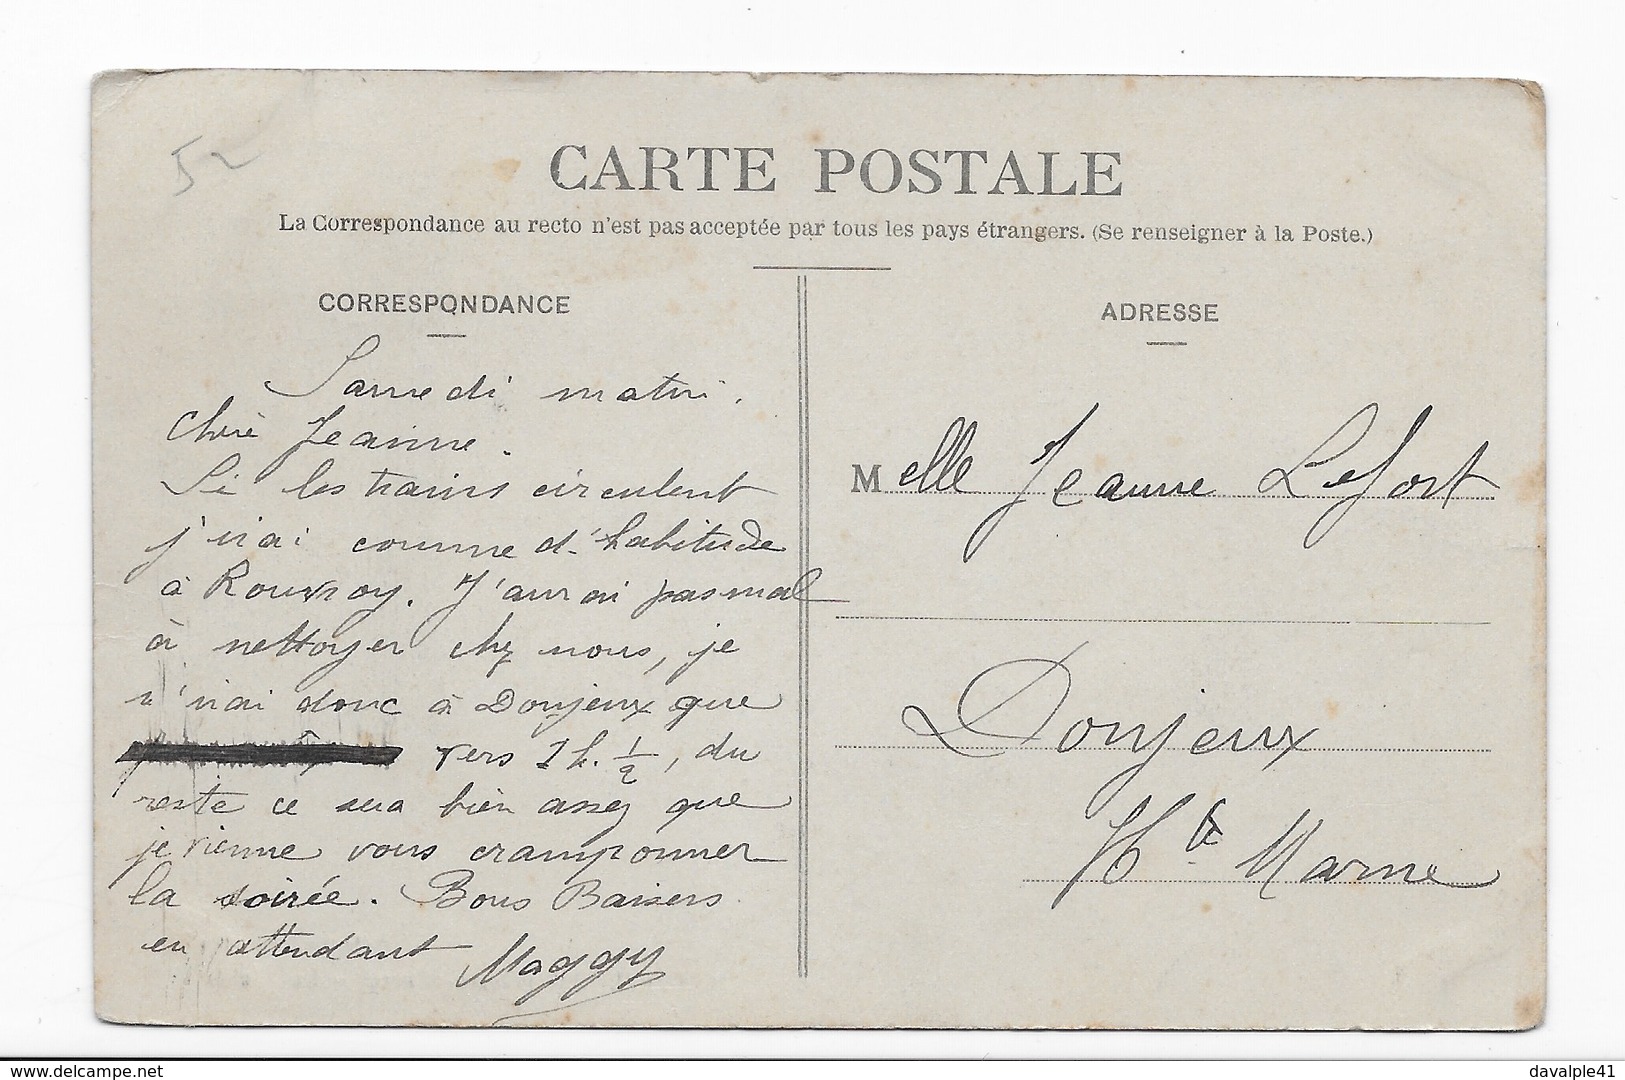 52
CARTE POSTALE
La Correspondance au recto n'est pas acceptée par tous les pays étrangers. (Se renseigner à la Poste.)
CORRESPONDANCE
Samedi matin.
Chère Jeanne.
Si les trains circulent
j'irai comme d'habitude
à Rouvroy. J'aurai pas mal
à nettoyer chez nous, je
n'irai donc à Donjeux que
vers 1 h. 1/2, du
reste ce sera bien assez que
je vienne vous cramponner
la soirée. Bons Baisers
en attendant Maggy
ADRESSE
Melle Jeanne Lefort
Donjeux
Hte Marne
delcampe.net
davalple41